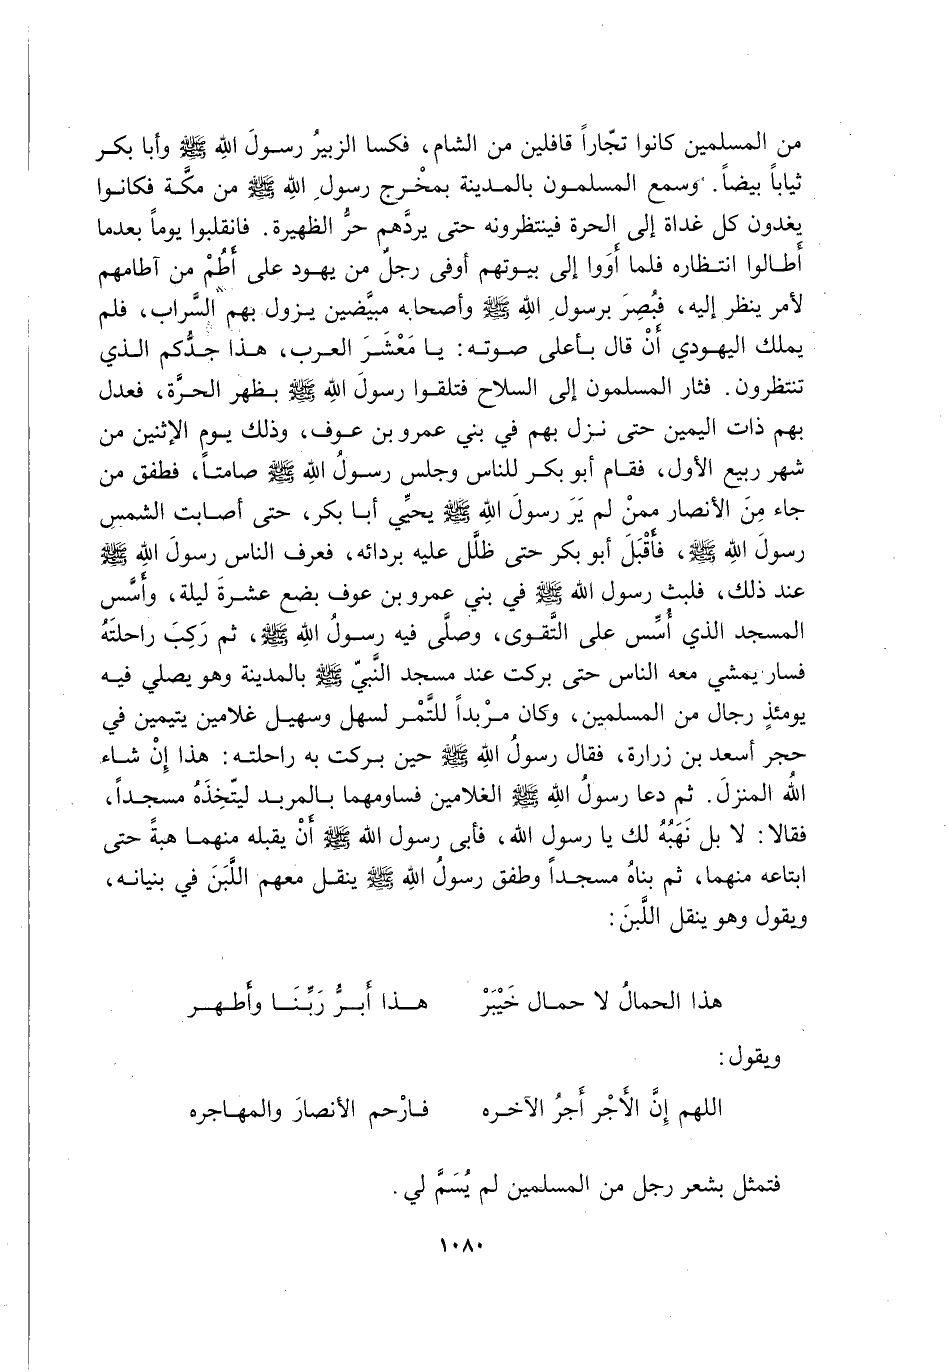 من المسلمين كانوا تجّاراً قافلين من الشام، فكسا الزبيرُ رسولَ الله ﷺ وأبا بكر
ثياباً بيضاً. وسمع المسلمون بالمدينة بمخْرج رسولِ الله ﷺ من مكَّة فكانوا
يغدون كل غداة إلى الحرة فينتظرونه حتى يردَّهم حرُّ الظهيرة. فانقلبوا يوماً بعدما
أطالوا انتظاره فلما أَوَوا إلى بيوتهم أوفى رجلٌ من يهود على أُطُمْ من آطامهم
لأمر ينظر إليه، فبُصِرَ برسولِ الله ﷺ وأصحابه مبيَّضين يزول بهم السَّراب، فلم
يملك اليهودي أَنْ قال بأعلى صوته: يا مَعْشَرَ العرب، هذا جدُّكم الذي
تنتظرون. فثار المسلمون إلى السلاح فتلقوا رسولَ الله ﷺ بظهر الحرَّة، فعدل
بهم ذات اليمين حتى نزل بهم في بني عمرو بن عوف، وذلك يوم الإثنين من
شهر ربيع الأول، فقام أبو بكر للناس وجلس رسولُ الله ﷺ صامتاً، فطفق من
جاء مِنَ الأنصار ممنْ لم يَرَ رسولَ الله ﷺ يحيِّي أبا بكر، حتى أصابت الشمس
رسولَ الله ﷺ، فأَقْبَلَ أبو بكر حتى ظلَّل عليه بردائه، فعرف الناس رسولَ الله ﷺ
عند ذلك، فلبث رسول الله ﷺ في بني عمرو بن عوف بضع عشرةَ ليلة، وأَسَّس
المسجد الذي أُسِّس على التَّقوى، وصلَّى فيه رسولُ الله ﷺ، ثم رَكِبَ راحلتَهُ
فسار يمشي معه الناس حتى بركت عند مسجد النَّبيّ ﷺ بالمدينة وهو يصلي فيه
يومئذٍ رجال من المسلمين، وكان مرْبداً للتَّمْر لسهل وسهيل غلامين يتيمين في
حجر أسعد بن زرارة، فقال رسولُ الله ﷺ حين بركت به راحلته: هذا إِنْ شاء
اللهُ المنزلَ. ثم دعا رسولُ الله ﷺ الغلامين فساومهما بالمربد ليتَّخِذَهُ مسجداً،
فقالا: لا بل نَهَبُهُ لك يا رسول الله، فأبى رسول الله ﷺ أَنْ يقبله منهما هبةً حتى
ابتاعه منهما، ثم بناهُ مسجداً وطفق رسولُ الله ﷺ ينقل معهم اللَّبَنَ في بنيانه،
ويقول وهو ينقل اللَّبنَ:
هذا الحمالُ لا حمال خَيْبَرْ هذا أَبرُّ رَبِّنَا وأَطهر
ويقول:
اللهم إِنَّ الأَجْر أَجرُ الآخره فارْحم الأنصارَ والمهاجره
فتمثل بشعر رجل من المسلمين لم يُسَمَّ لي.
١٠٨٠